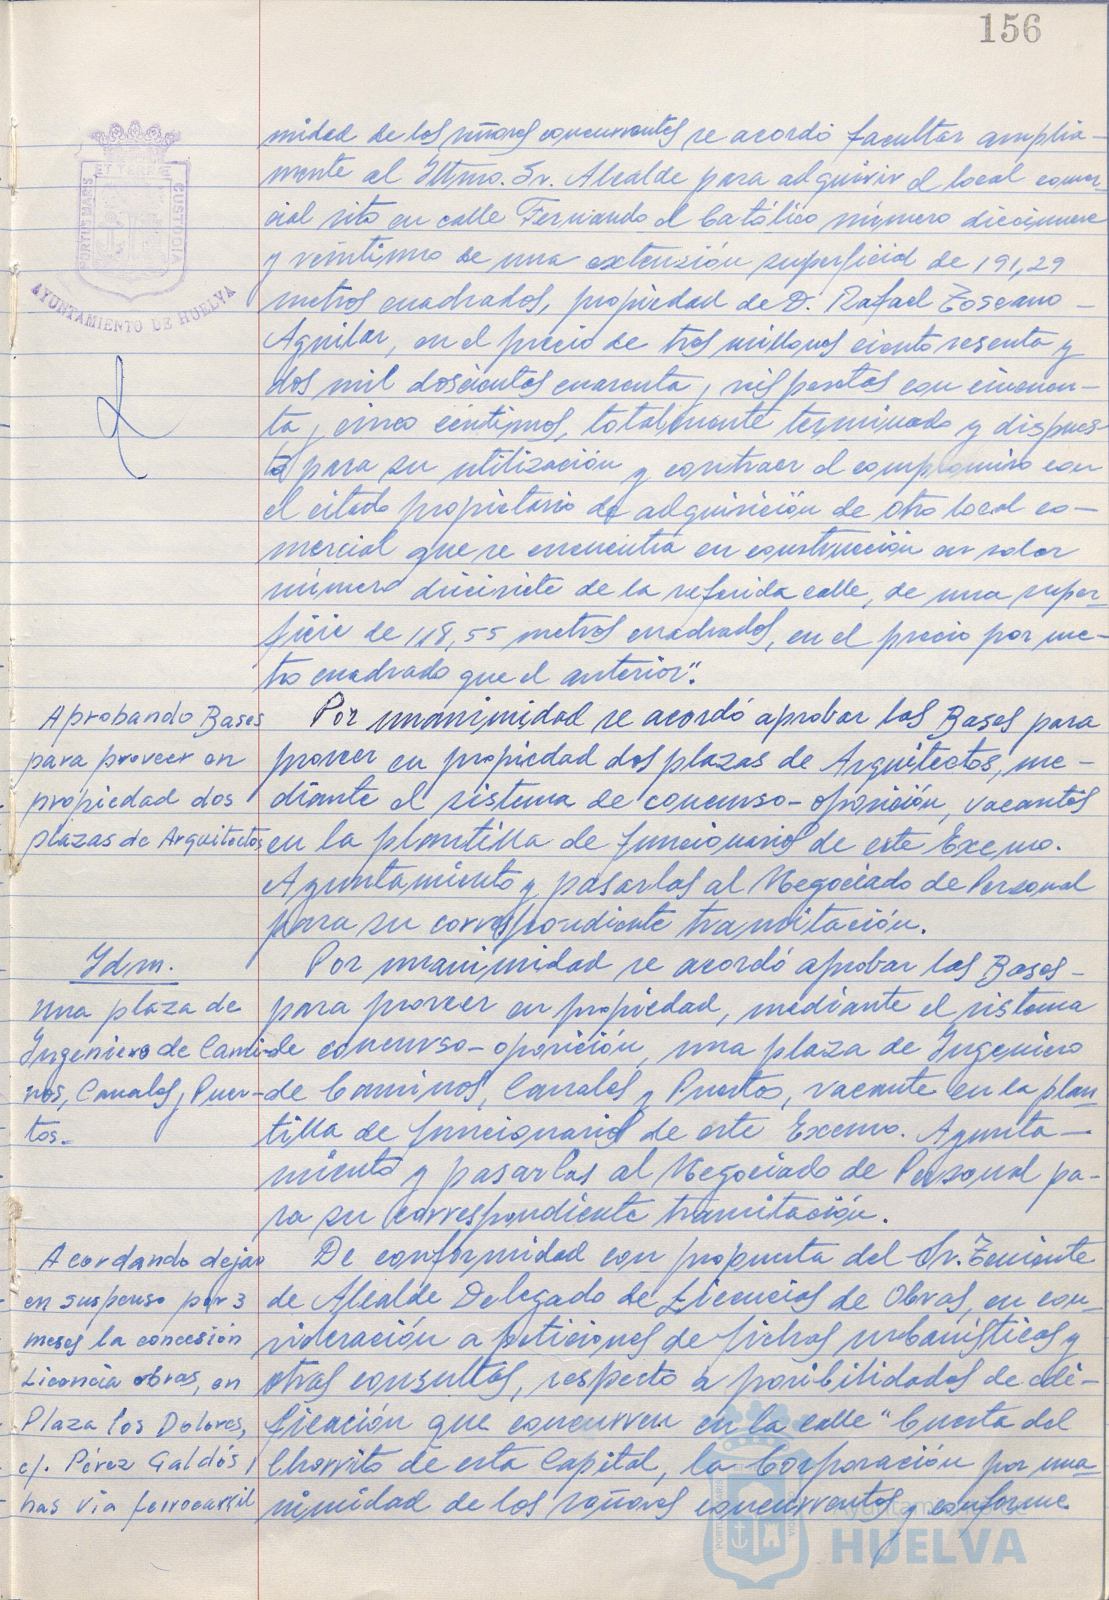 156
PORTUS MARIS
ET TERRE
CUSTODIA
AYUNTAMIENTO DE HUELVA
midad de los señores concurrentes se acordó facultar amplia-
mente al Iltmo. Sr. Alcalde para adquirir el local comer-
cial sito en calle Fernando el Católico número diecinueve
y veintiuno de una extensión superficial de 191,29
metros cuadrados, propiedad de D. Rafael Toscano-
Aguilar, en el precio de tres millones ciento sesenta y
dos mil doscientos cuarenta y seis pesetas con cincuen-
ta y cinco céntimos, totalmente terminado y dispues-
to para su utilización y contraer el compromiso con
el citado propietario de adquisición de otro local co-
mercial que se encuentra en construcción en solar
número diecisiete de la referida calle, de una super-
ficie de 118,55 metros cuadrados, en el precio por me-
tro cuadrado que el anterior".
Aprobando Bases
para proveer en
propiedad dos
plazas de Arquitectos
Por unanimidad se acordó aprobar las Bases para
proveer en propiedad dos plazas de Arquitectos, me-
diante el sistema de concurso-oposición, vacantes
en la plantilla de funcionarios de este Excmo.
Ayuntamiento y pasarlas al Negociado de Personal
para su correspondiente tramitación.
Idm.
una plaza de
Ingeniero de Cami-
nos, Canales y Puer-
tos.-
Por unanimidad se acordó aprobar las Bases-
para proveer en propiedad, mediante el sistema
de concurso-oposición, una plaza de Ingeniero
de Caminos, Canales y Puertos, vacante en la plan-
tilla de funcionarios de este Excmo. Ayunta-
miento y pasarlas al Negociado de Personal pa-
ra su correspondiente tramitación.
Acordando dejar
en suspenso por 3
meses la concesión
Licencia obras, en
Plaza los Dolores,
c/. Pérez Galdós y
has via ferrocarril
De conformidad con propuesta del Sr. Teniente
de Alcalde Delegado de Licencias de Obras, en con-
sideración a peticiones de fichas urbanísticas y
otras consultas, respecto a posibilidades de edi-
ficación que concurren en la calle "Cuesta del
Chorrito de esta Capital, la Corporación por una-
nimidad de los señores concurrentes y conforme
Ayuntamiento de
HUELVA